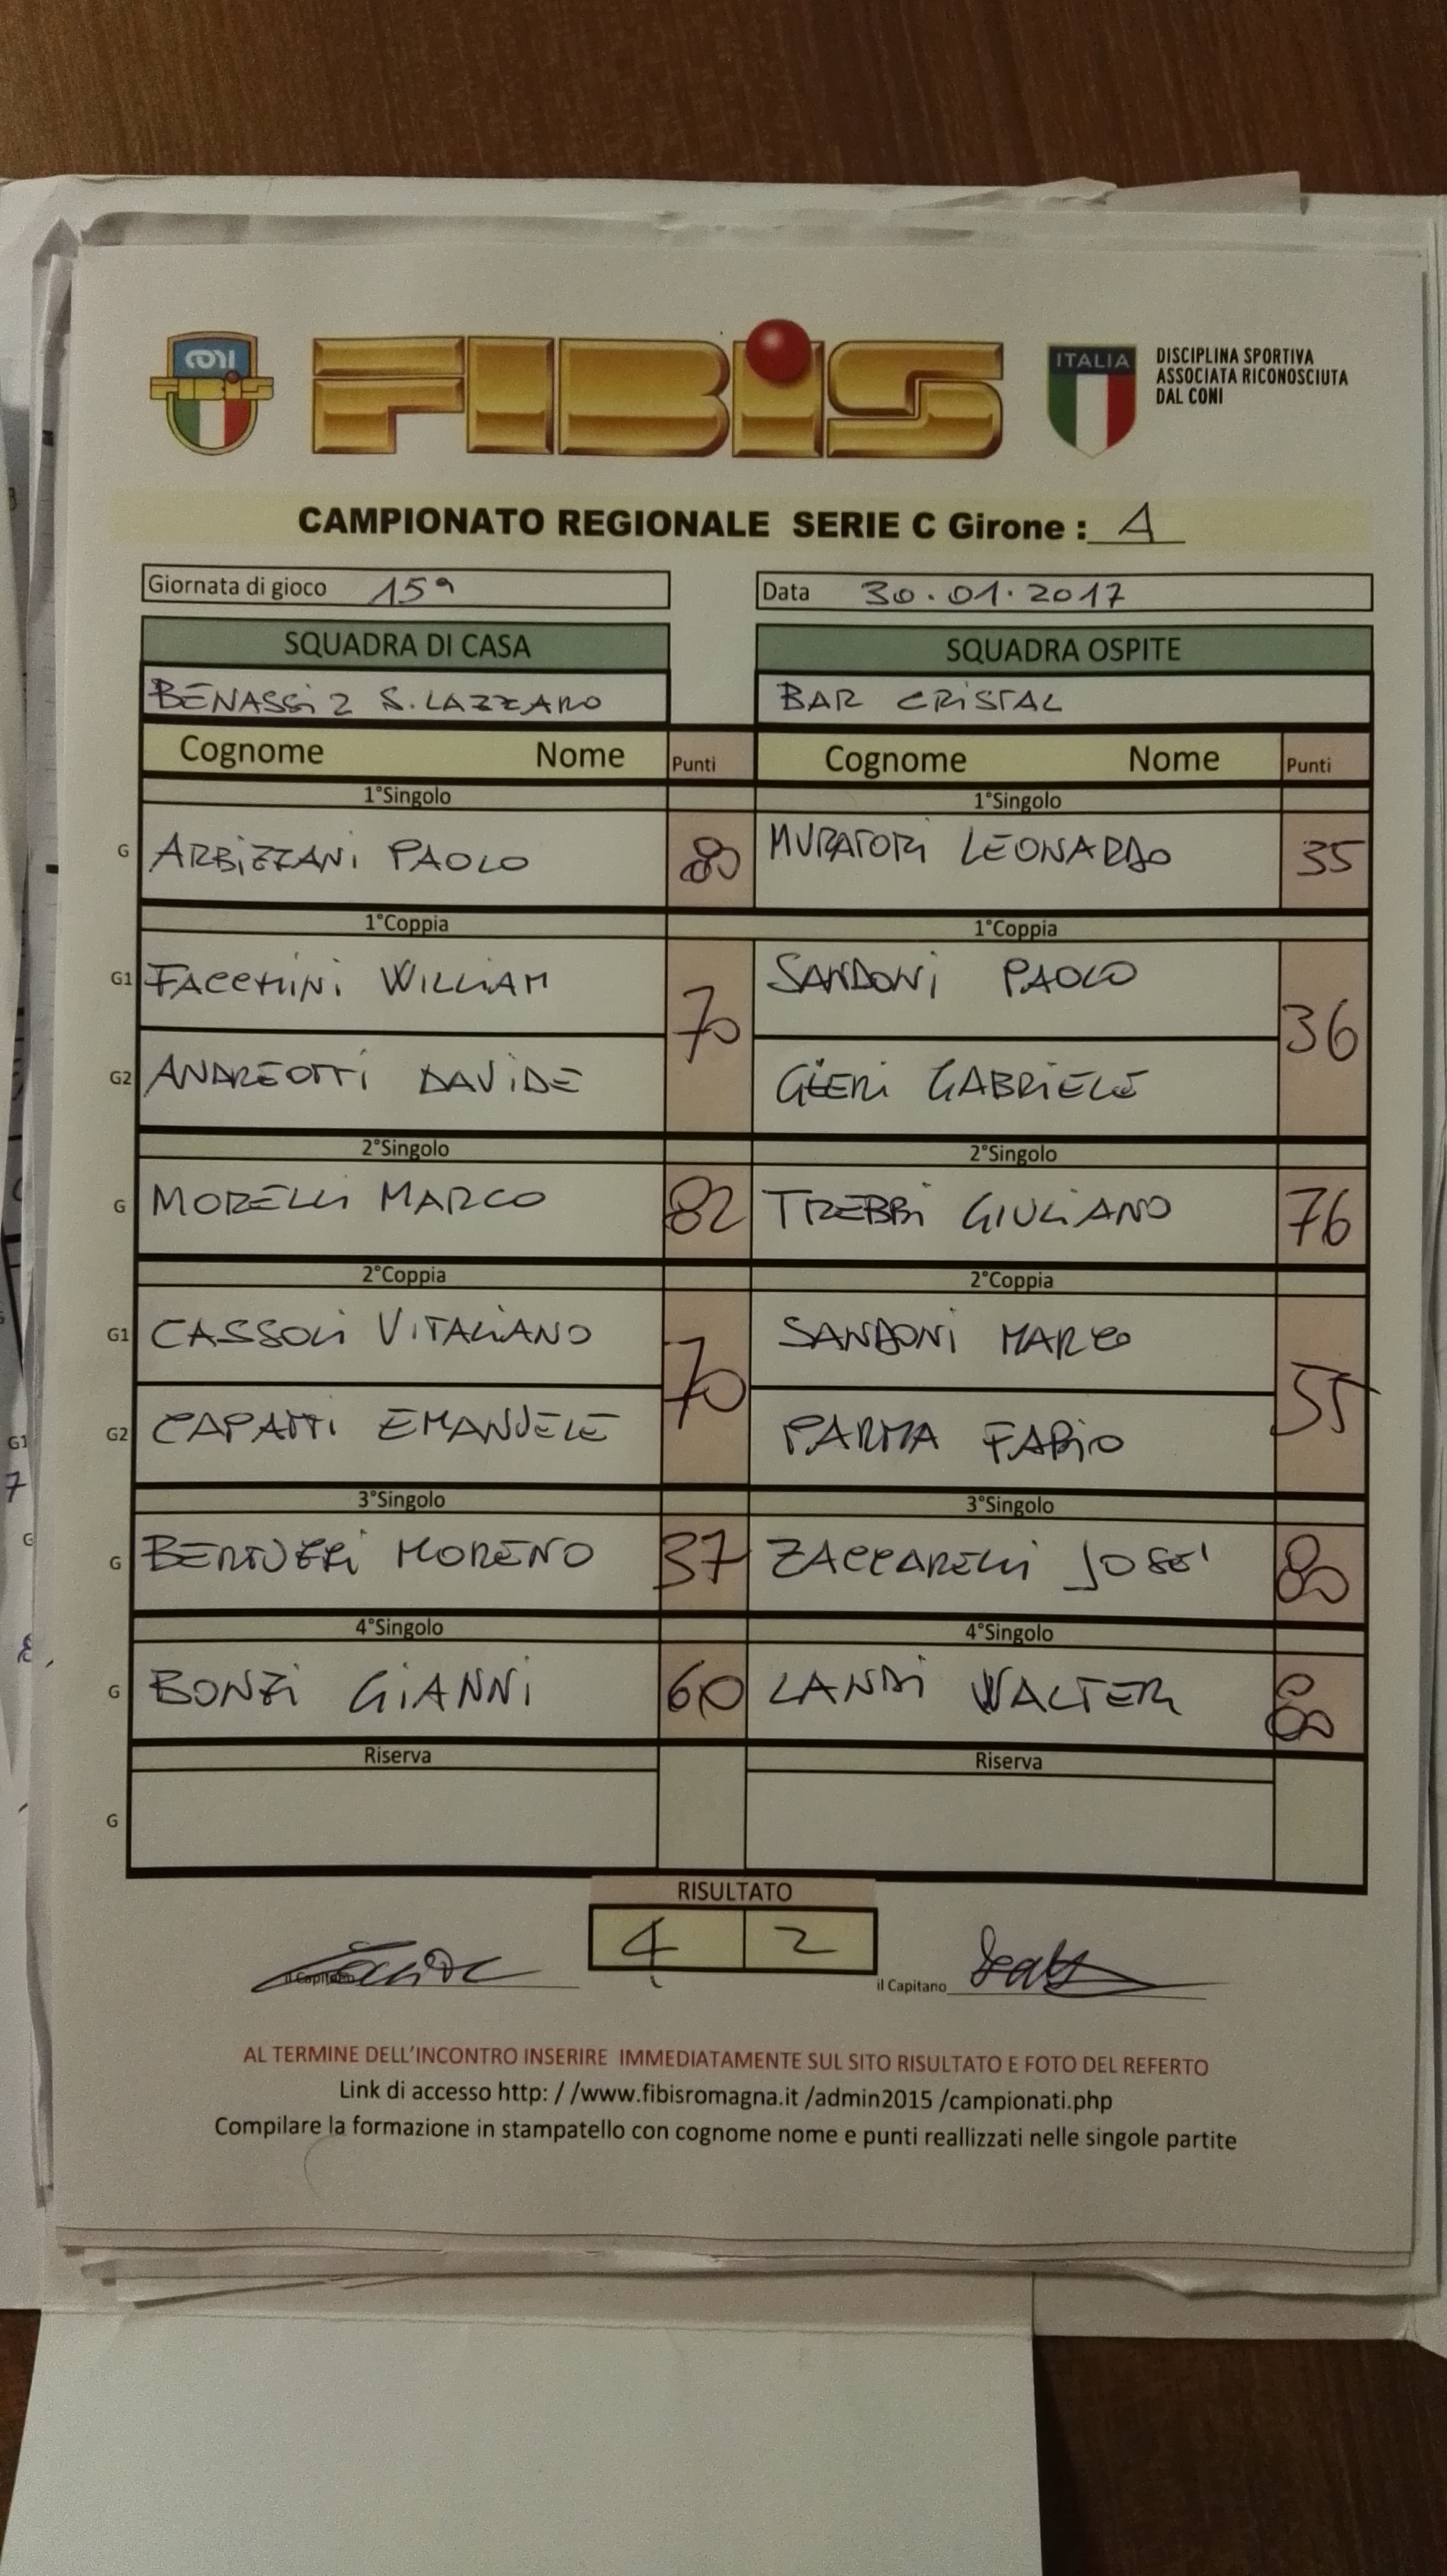 CONI
FIBIS
FIBIS
ITALIA
DISCIPLINA SPORTIVA
ASSOCIATA RICONOSCIUTA
DAL CONI
CAMPIONATO REGIONALE SERIE C Girone : A
Giornata di gioco 15ª Data 30.01.2017
SQUADRA DI CASA SQUADRA OSPITE
BENASSI 2 S. LAZZARO BAR CRISTAL
Cognome Nome Punti Cognome Nome Punti
1°Singolo 1°Singolo
G ARBIZZANI PAOLO 80 MURATORI LEONARDO 35
1°Coppia 1°Coppia
G1 FACCHINI WILLIAM 70 SANDONI PAOLO 36
G2 ANDREOTTI DAVIDE GIERI GABRIELE
2°Singolo 2°Singolo
G MORELLI MARCO 82 TREBBI GIULIANO 76
2°Coppia 2°Coppia
G1 CASSOLI VITALIANO 70 SANDONI MARCO 55
G2 CAPATTI EMANUELE PARMA FABIO
3°Singolo 3°Singolo
G MORENO 37 ZACCARELLI JOSE' 80
4°Singolo 4°Singolo
G BONZI GIANNI 60 LANDI WALTER 80
Riserva Riserva
G
RISULTATO
4 2
il Capitano il Capitano
AL TERMINE DELL'INCONTRO INSERIRE IMMEDIATAMENTE SUL SITO RISULTATO E FOTO DEL REFERTO
Link di accesso http: / /www.fibisromagna.it /admin2015 /campionati.php
Compilare la formazione in stampatello con cognome nome e punti reallizzati nelle singole partite